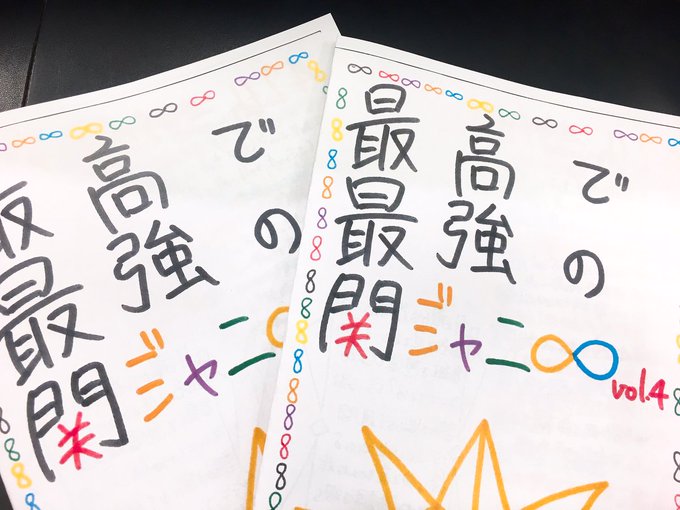 最高で
最強の
関ジャニ∞
最高で
最強の
関ジャニ∞
vol.4